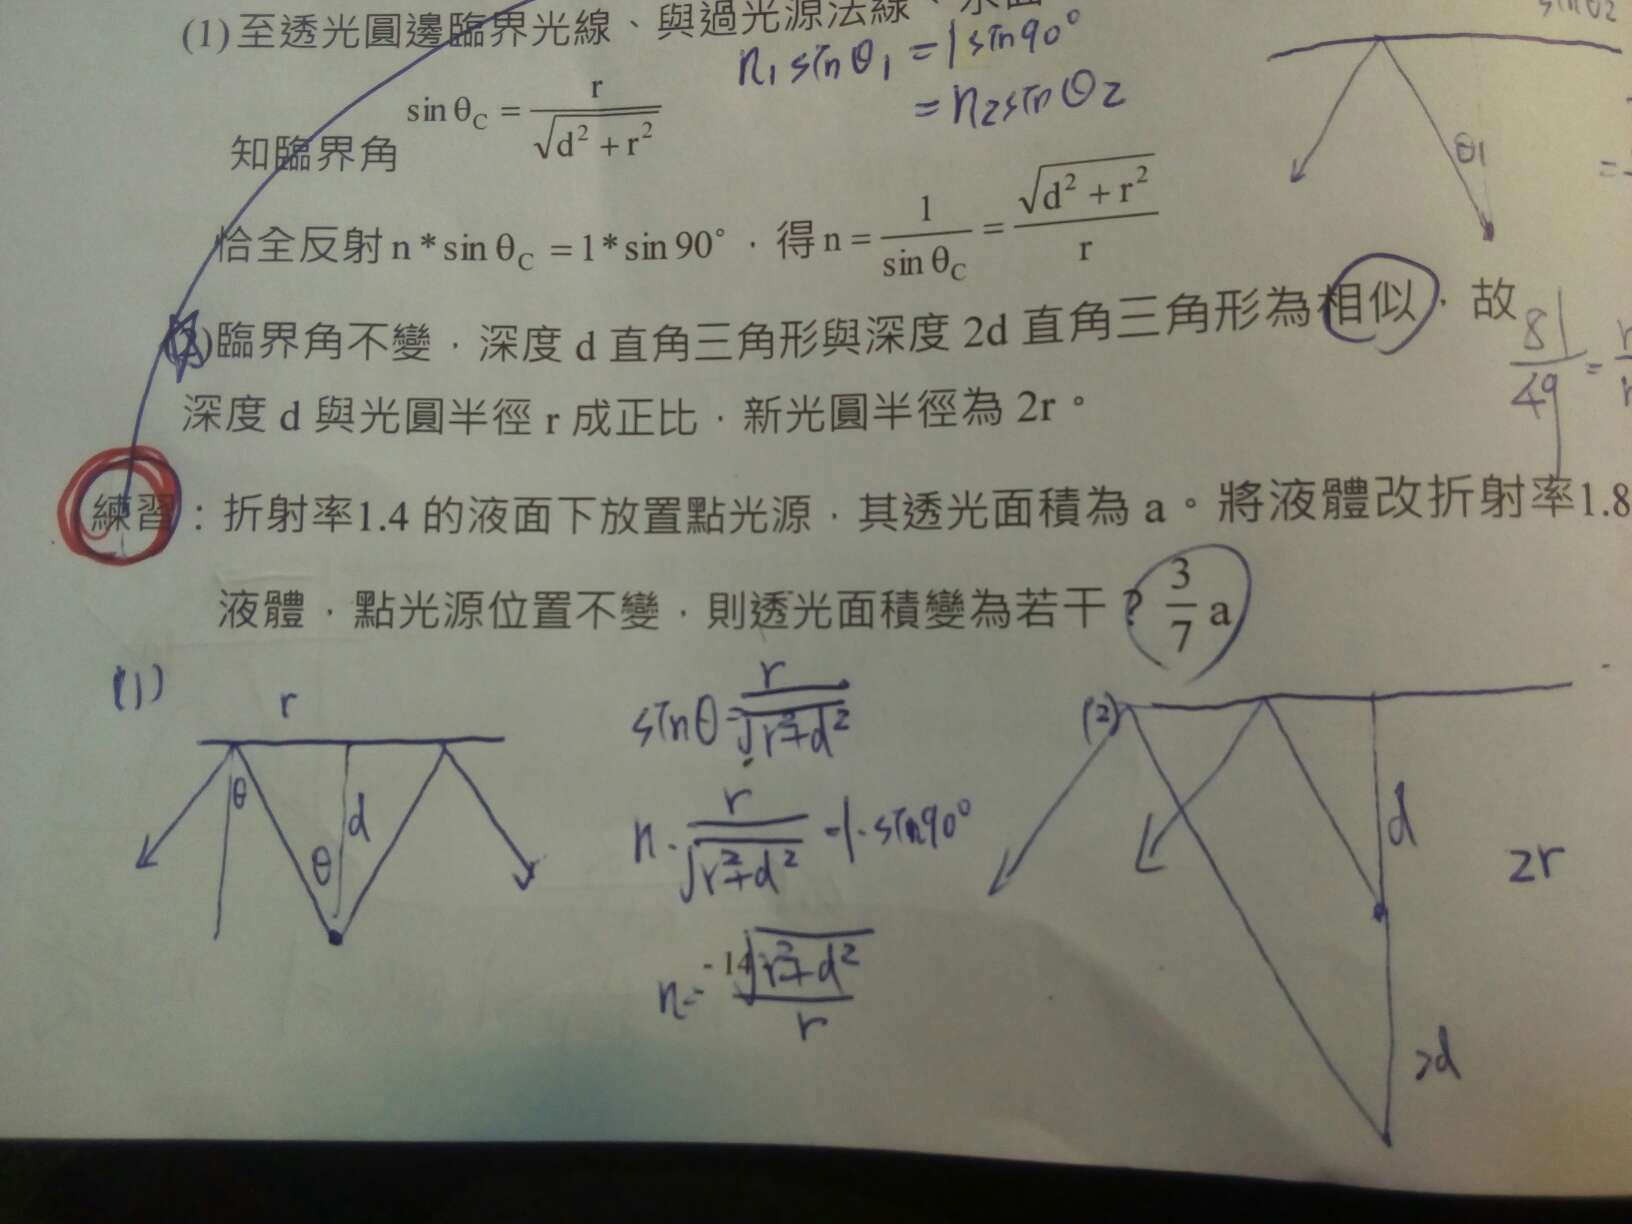 (1)至透光圓邊臨界光線、與過光源法線、水面
n₁ sinθ₁ = 1 sin90°
= n₂ sinθ₂
sinθ₂
知臨界角 sin θ_C = r / √(d² + r²)
θ1
恰全反射 n * sin θ_C = 1 * sin 90°，得 n = 1 / sin θ_C = √(d² + r²) / r
臨界角不變，深度 d 直角三角形與深度 2d 直角三角形為相似，故
81/49 =
深度 d 與光圓半徑 r 成正比，新光圓半徑為 2r。
練習：折射率1.4 的液面下放置點光源，其透光面積為 a。將液體改折射率1.8
液體，點光源位置不變，則透光面積變為若干？ 3/7 a
(1)
r
θ
θ
d
sinθ = r / √(r²+d²)
n · r / √(r²+d²) = 1 · sin90°
n = √(r²+d²) / r
- 14
(2)
d
2r
2d